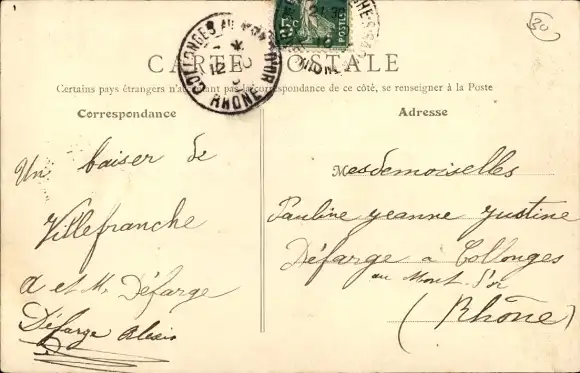 CARTE POSTALE
Certains pays étrangers n'acceptant pas la correspondance de ce côté, se renseigner à la Poste
Correspondance
Un baiser de
Villefranche
A et M. Défarge
Défarge Alexis
Adresse
Mesdemoiselles
Pauline Jeanne Justine
Défarge à Collonges
au Mont d'or
(Rhône)
COLLONGES AU MONT D'OR
12
RHÔNE
5c
POSTES
20